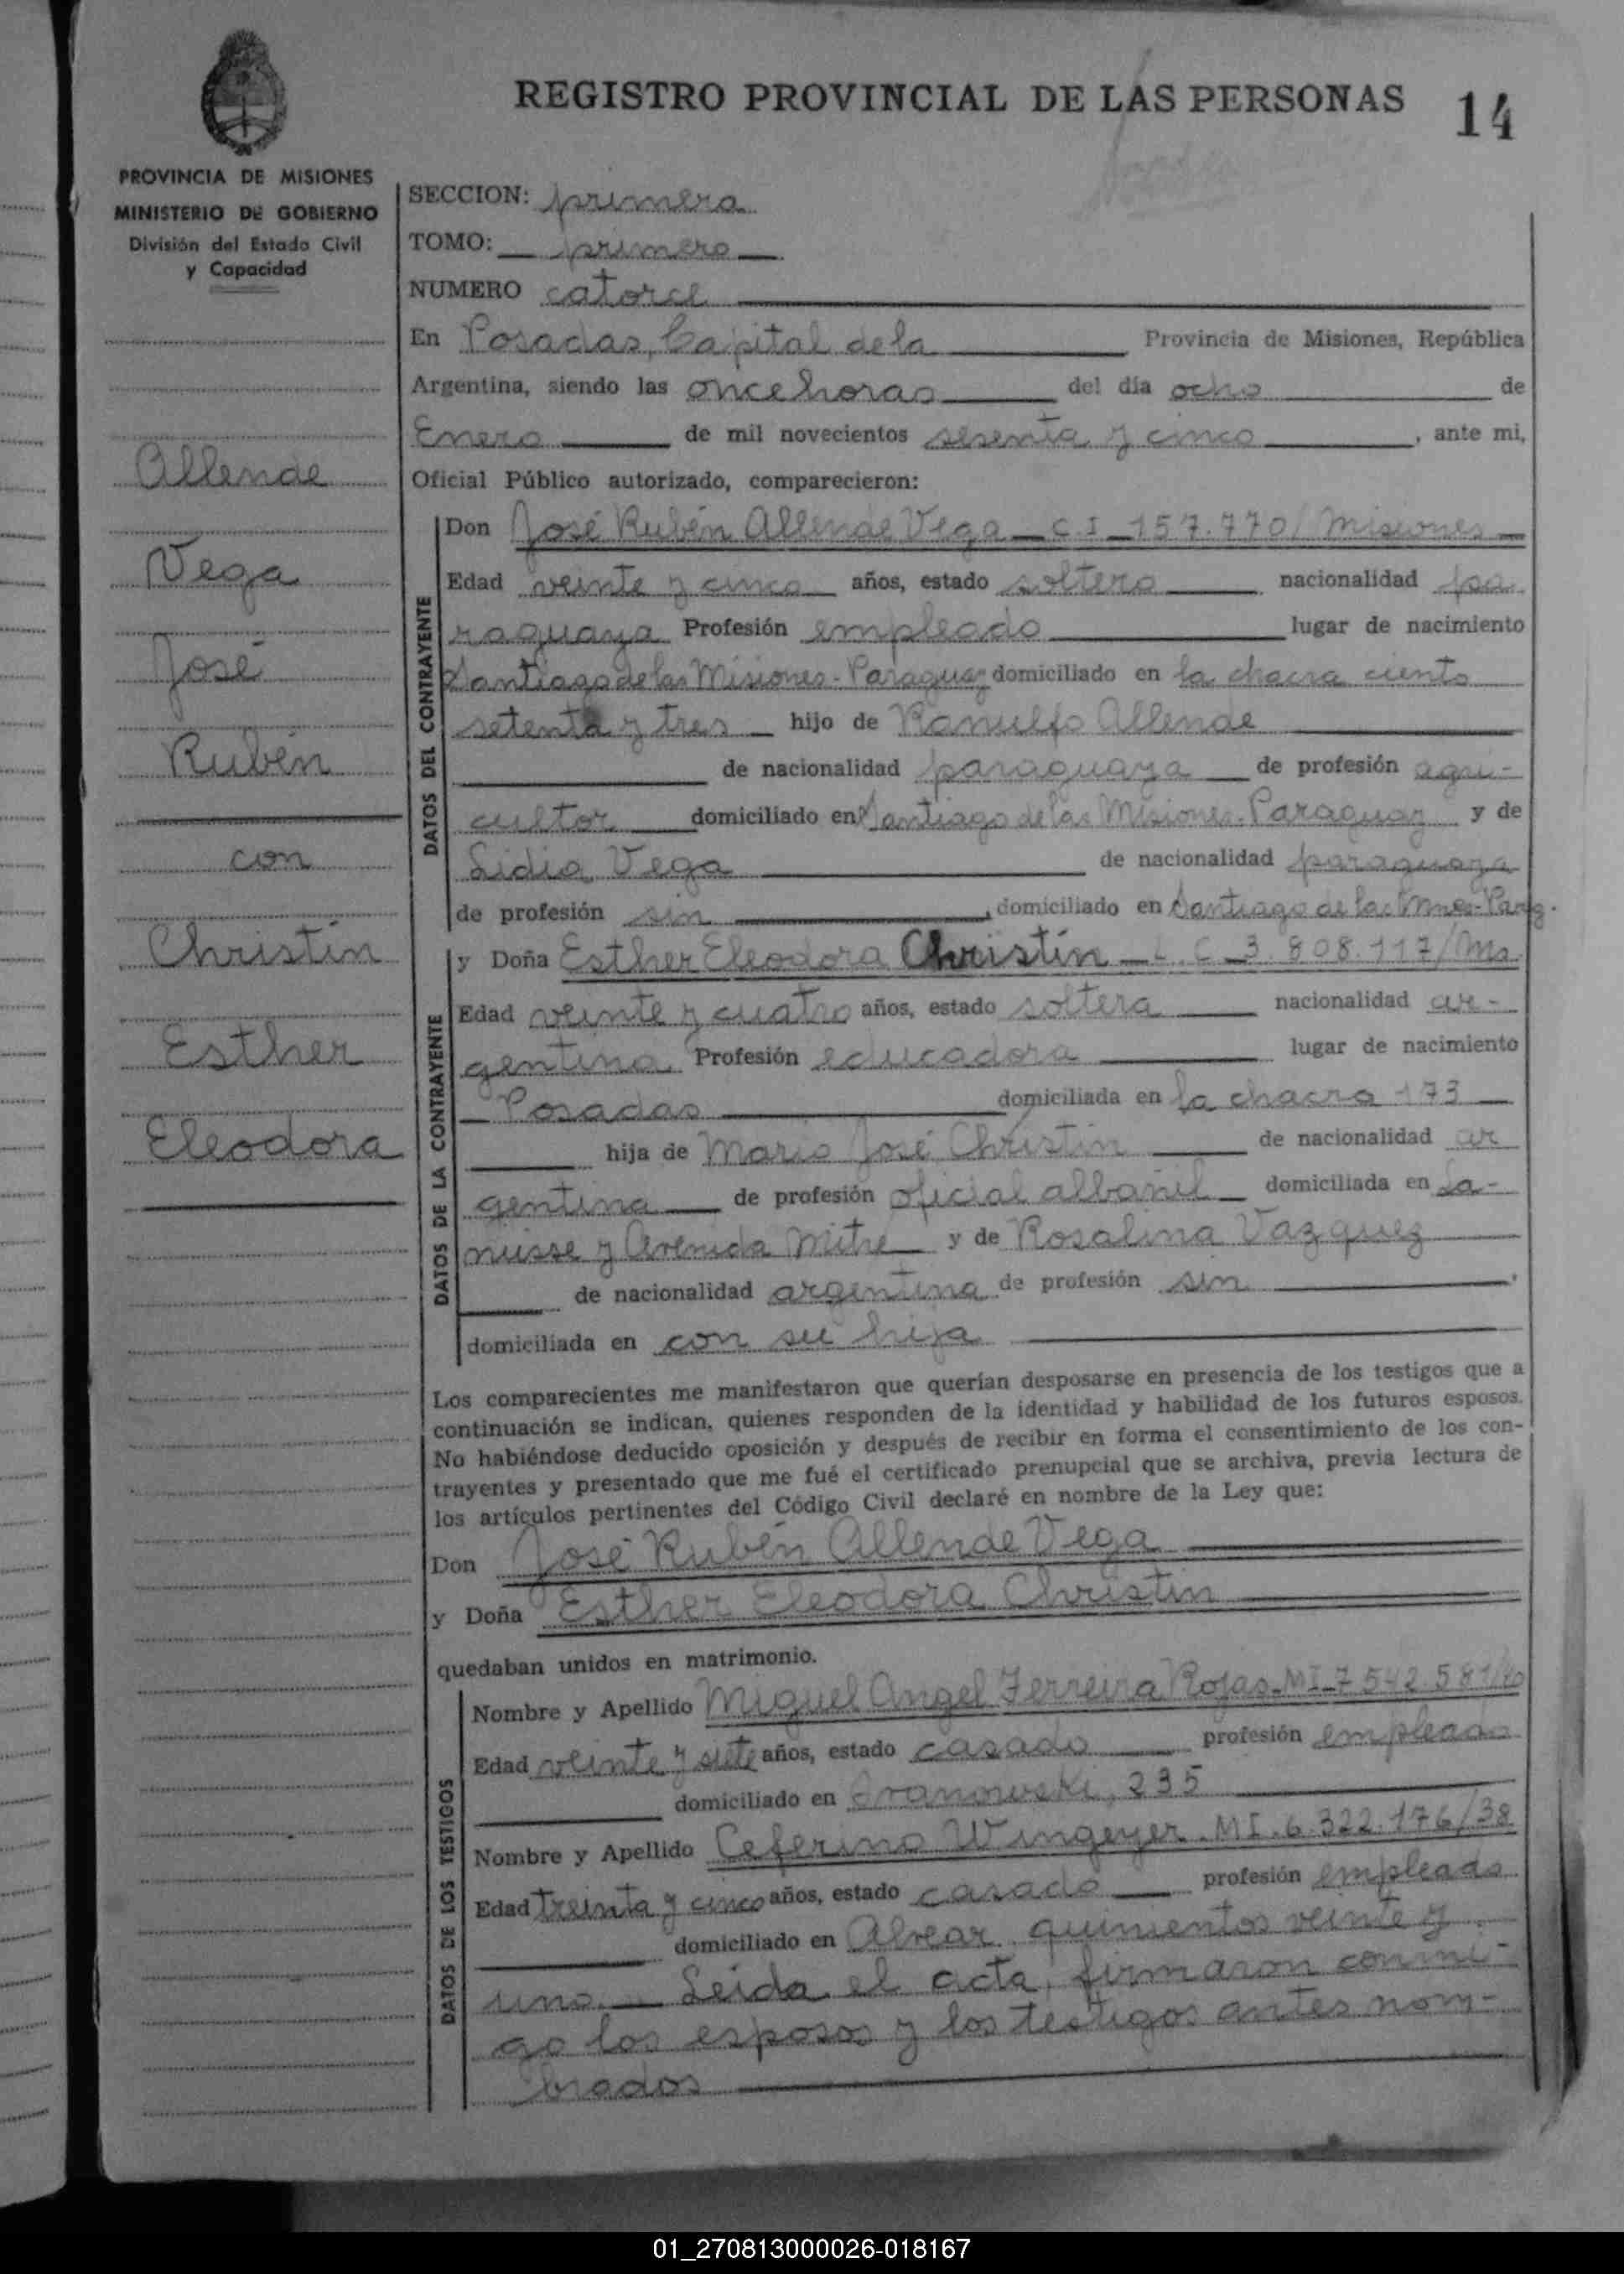 REGISTRO PROVINCIAL DE LAS PERSONAS
14
PROVINCIA DE MISIONES
MINISTERIO DE GOBIERNO
División del Estado Civil
y Capacidad
Allende
Vega
José
Rubén
con
Christin
Esther
Eleodora
SECCION: primera
TOMO: primero
NUMERO catorce
En Posadas, Capital de la Provincia de Misiones, República
Argentina, siendo las once horas del día ocho de
Enero de mil novecientos sesenta y cinco, ante mi,
Oficial Público autorizado, comparecieron:
DATOS DEL CONTRAYENTE
Don José Rubén Allende Vega - C.I - 157.770/Misiones
Edad veinte y cinco años, estado soltero nacionalidad pa
raguaya Profesión empleado lugar de nacimiento
Santiago de las Misiones - Paraguay domiciliado en la chacra ciento
setenta y tres hijo de Ranulfo Allende
de nacionalidad paraguaya de profesión agri-
cultor domiciliado en Santiago de las Misiones - Paraguay y de
Lidia Vega de nacionalidad paraguaya
de profesión sin, domiciliado en Santiago de las Mnes - Parg.
DATOS DE LA CONTRAYENTE
y Doña Esther Eleodora Christin - L.C - 3.808.117/Ms.
Edad veinte y cuatro años, estado soltera nacionalidad ar-
gentina Profesión educadora lugar de nacimiento
Posadas domiciliada en la chacra 173
hija de Mario José Christin de nacionalidad ar
gentina de profesión oficial albañil domiciliada en La-
nusse y Avenida Mitre y de Rosalina Vazquez
de nacionalidad argentina de profesión sin,
domiciliada en con su hija
Los comparecientes me manifestaron que querían desposarse en presencia de los testigos que a
continuación se indican, quienes responden de la identidad y habilidad de los futuros esposos.
No habiéndose deducido oposición y después de recibir en forma el consentimiento de los con-
trayentes y presentado que me fué el certificado prenupcial que se archiva, previa lectura de
los artículos pertinentes del Código Civil declaré en nombre de la Ley que:
Don José Rubén Allende Vega
y Doña Esther Eleodora Christin
quedaban unidos en matrimonio.
DATOS DE LOS TESTIGOS
Nombre y Apellido Miguel Angel Ferreira Rojas - MI - 7.542.581
Edad veinte y siete años, estado casado profesión empleado
domiciliado en 235
Nombre y Apellido Ceferino Wingeyer - MI. 6.322.176/38
Edad treinta y cinco años, estado casado profesión empleado
domiciliado en Alvear quinientos veinte y
uno. - Leida el acta, firmaron conmi-
go los esposos y los testigos antes nom-
brados
01_270813000026-018167